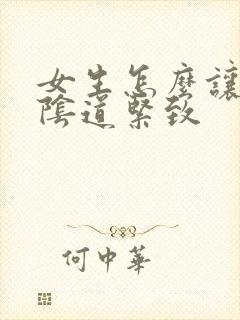 女生怎麽讓
陰道緊致
何中華